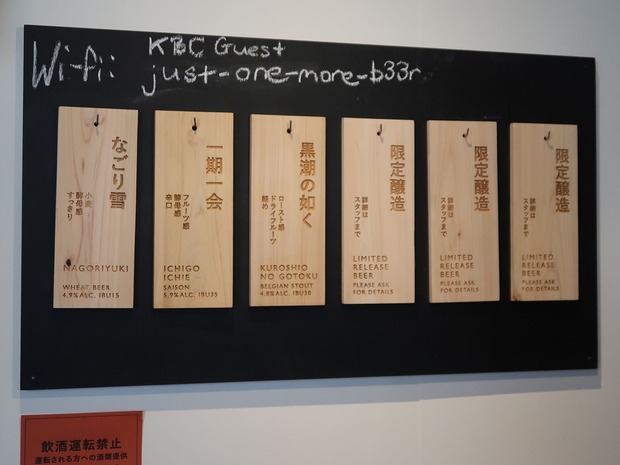 Wi-fii:
KBC Guest
just-one-more-b33r
なごり雪
小麦
酵母感
すっきり
NAGORIYUKI
WHEAT BEER
4.9% ALC. IBU15
一期一会
フルーツ感
酵母感
辛口
ICHIGO
ICHIE
SAISON
5.9% ALC. IBU35
黒潮の如く
ロースト感
ドライフルーツ
軽め
KUROSHIO
NO GOTOKU
BELGIAN STOUT
4.8% ALC. IBU30
限定醸造
詳細は
スタッフまで
LIMITED
RELEASE
BEER
PLEASE ASK
FOR DETAILS
限定醸造
詳細は
スタッフまで
LIMITED
RELEASE
BEER
PLEASE ASK
FOR DETAILS
限定醸造
詳細は
スタッフまで
LIMITED
RELEASE
BEER
PLEASE ASK
FOR DETAILS
飲酒運転禁止
運転される方への酒類提供